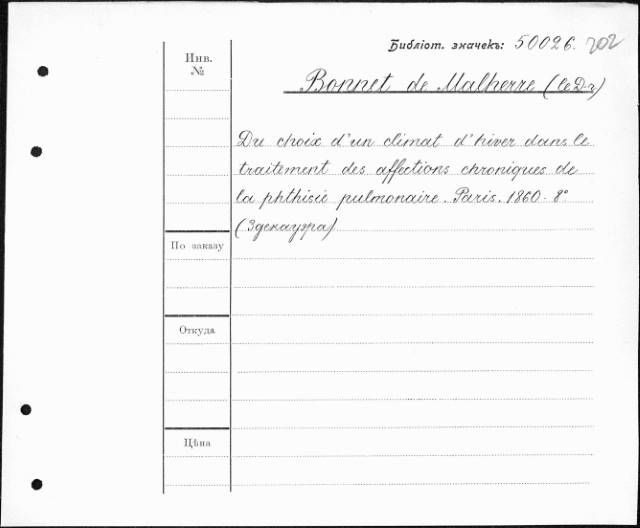 Библіот. значекъ: 50026. 202
Инв.
№
Bonnet de Malherre (le D-r)
Du choix d'un climat d'hiver dans le
traitement des affections chroniques de
la phthisie pulmonaire. Paris. 1860. 8°
(Здекауэра)
По заказу
Откуда
Цѣна